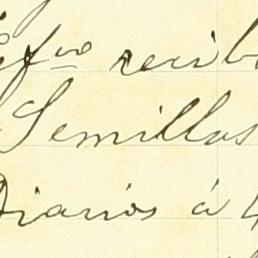 Efvo recib
Semillas
Diarios á 4